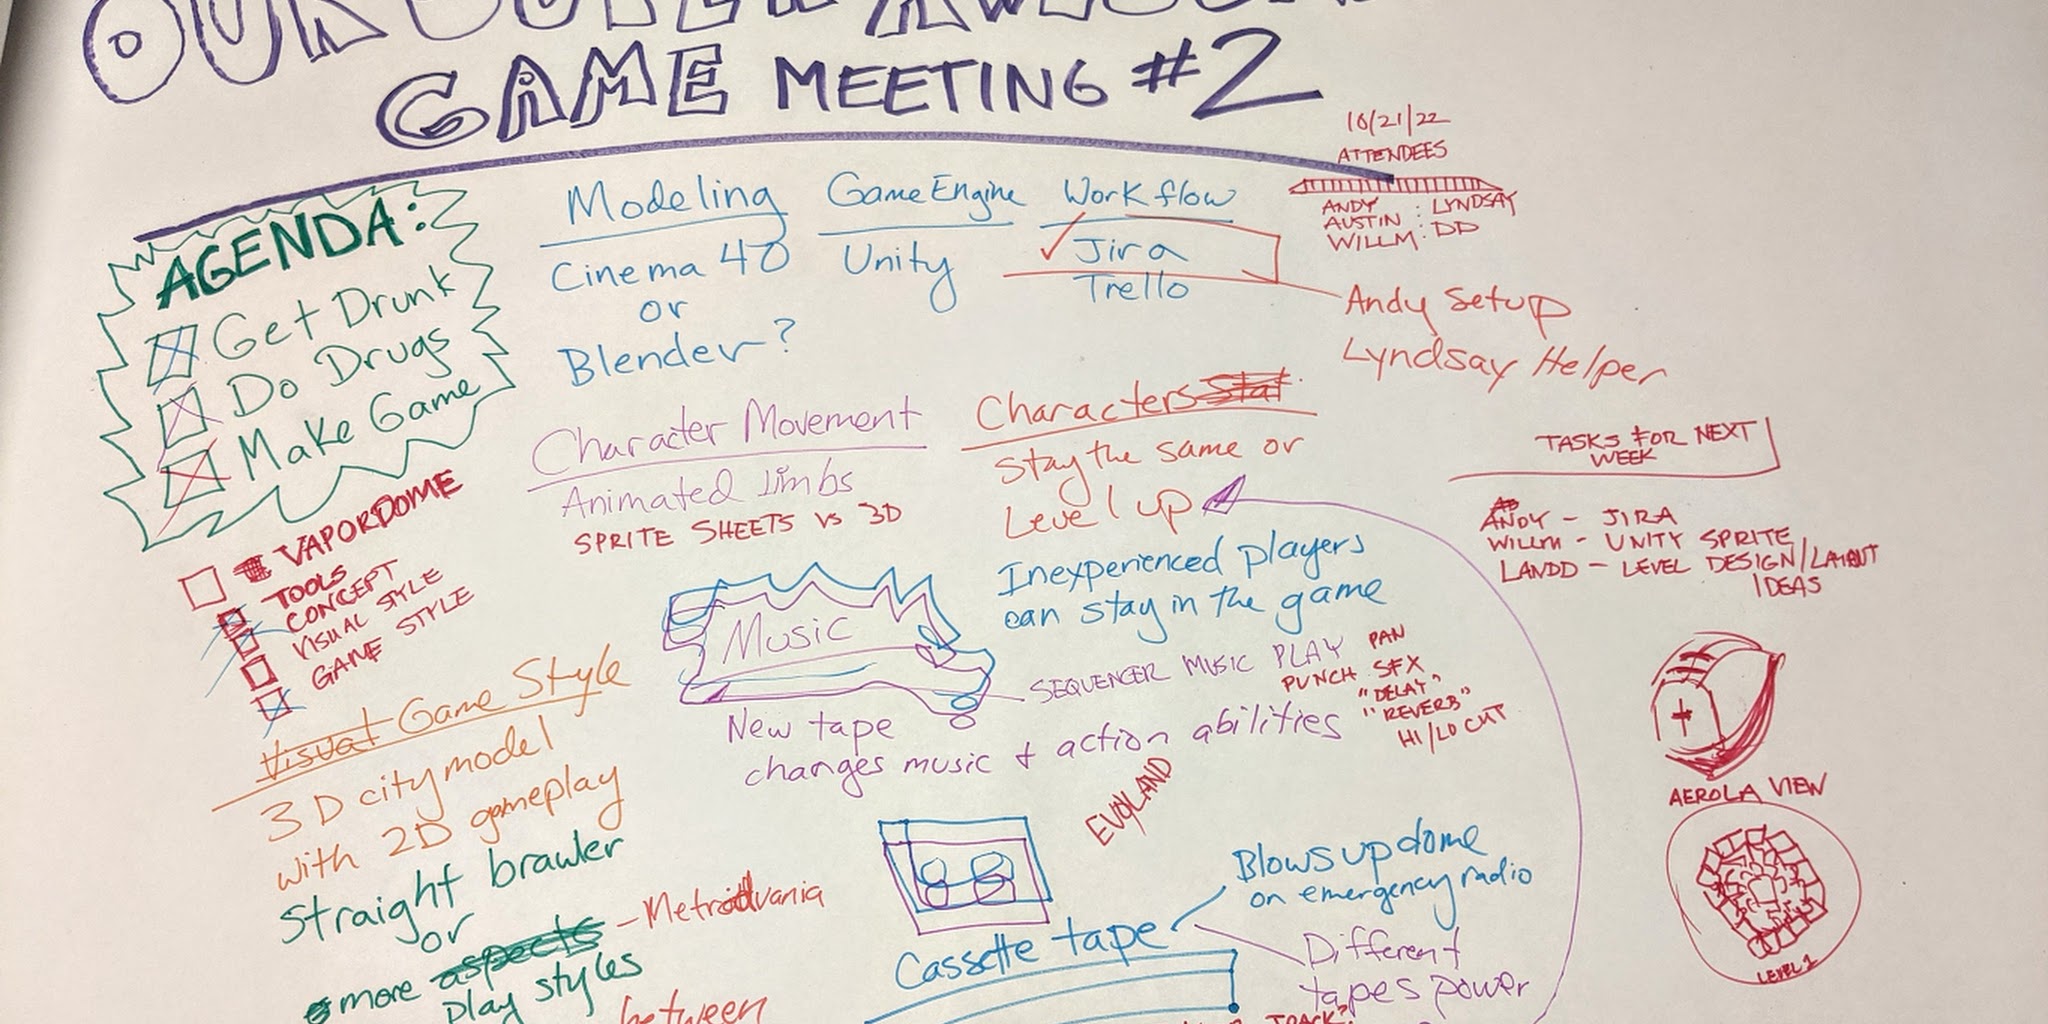 OUR SUPER AWESOME
GAME MEETING #2
10/21/22
ATTENDEES
ANDY : LYNDSAY
AUSTIN
WILLM : DD
AGENDA:
Get Drunk
Do Drugs
Make Game
Modeling
Cinema 4D
or
Blender?
Game Engine
Unity
Workflow
Jira
Trello
Andy Setup
Lyndsay Helper
Character Movement
Animated Limbs
SPRITE SHEETS VS 3D
Characters Stat
Stay the same or
Level up
Inexperienced players
can stay in the game
TASKS FOR NEXT
WEEK
ANDY - JIRA
WILLM - UNITY SPRITE
LANDD - LEVEL DESIGN/LAYOUT
IDEAS
VAPORDOME
TOOLS
CONCEPT
VISUAL STYLE
GAME STYLE
Music
SEQUENCER MUSIC PLAY PAN
PUNCH SFX
"DELAY"
"REVERB"
HI/LO CUT
New tape
changes music + action abilities
EVOLAND
Visual Game Style
3D city model
with 2D gameplay
Straight brawler
or
more aspects - Metroidvania
play styles
between
Cassette tape
Blows up dome
on emergency radio
Different
tapes power
TRACK?
AEROLA VIEW
LEVEL 1